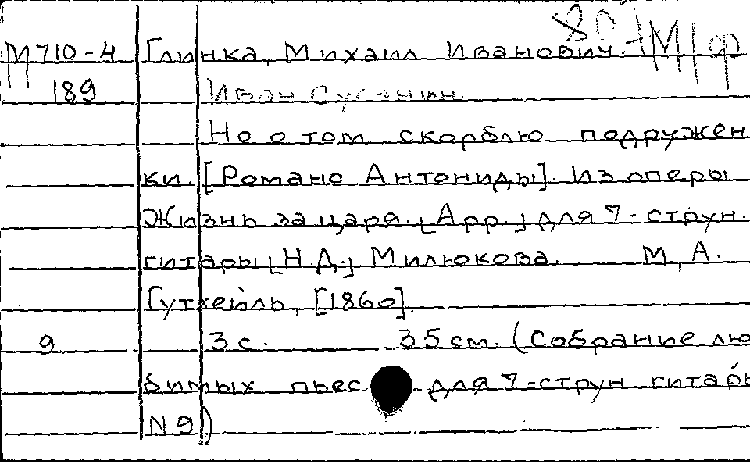 М 710-4 Глинка, Михаил Иванович.
189 Иван Сусанин.
Не о том скорблю подружен
ки. [Романс Антониды]. Из оперы
Жизнь за царя. [Арр.] для 7-струн.
гитары [Н.Д.] Милюкова. М, А.
Гутхейль, [1860].
9 3 с. 35 см. (Собрание лю
бимых пьес для 7-струн гитары
N 9)